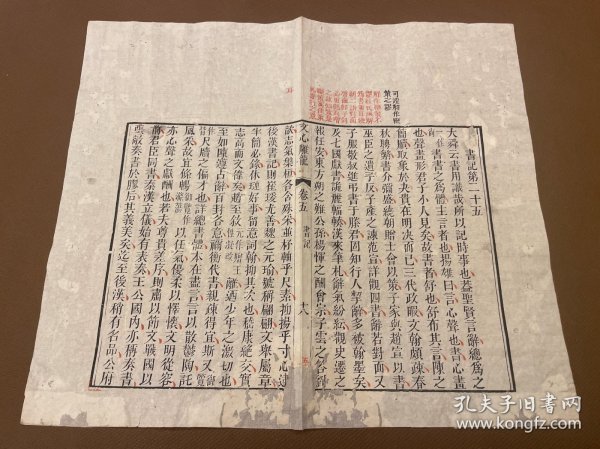 書記第二十五
大舜云書用識哉所以記時事也蓋聖賢言辭總為之
書書之為體主言者也揚雄曰言心聲也書心畫
也聲畫形君子小人見矣故書者舒也舒布其言陳之
簡牘取象於夬貴在明決而已三代政暇文翰頗疎春
秋聘繁書介彌盛繞朝贈士會以策子家與趙宣以書
巫臣之遺子反子產之諫范宣詳觀四書辭若對面又
子服敬叔進弔書于滕君固知行人挈辭多被翰墨矣
及七國獻書詭麗輻輳漢來筆札辭氣紛紜觀史遷之
報任安東方朔之難公孫楊惲之酬會宗子雲之答劉
文心雕龍
卷五
書記
十八
歆志氣槃桓各含殊采並杼軸乎尺素抑揚乎寸心逮
後漢書記則崔瑗尤善魏之元瑜號稱翩翩文舉屬章
半簡必錄休璉好事留意詞翰抑其次也嵇康絕交實
志高而文偉矣趙至
離迺少年之激切也
至如陳遵占辭百封各意禰衡代書親疎得宜斯又
尺牘之偏才也詳總書體本在盡言言以散鬱陶託
風采故宜條暢
以任氣優柔以懌懷文明從容
亦心聲之獻酬也若夫尊貴差序則肅以節文戰國以
前君臣同書秦漢立儀始有表奏王公國內亦稱奏書
張敞奏書於膠后其義美矣迄至後漢稍有名品公府
孔夫子旧书网
www.kongfz.com